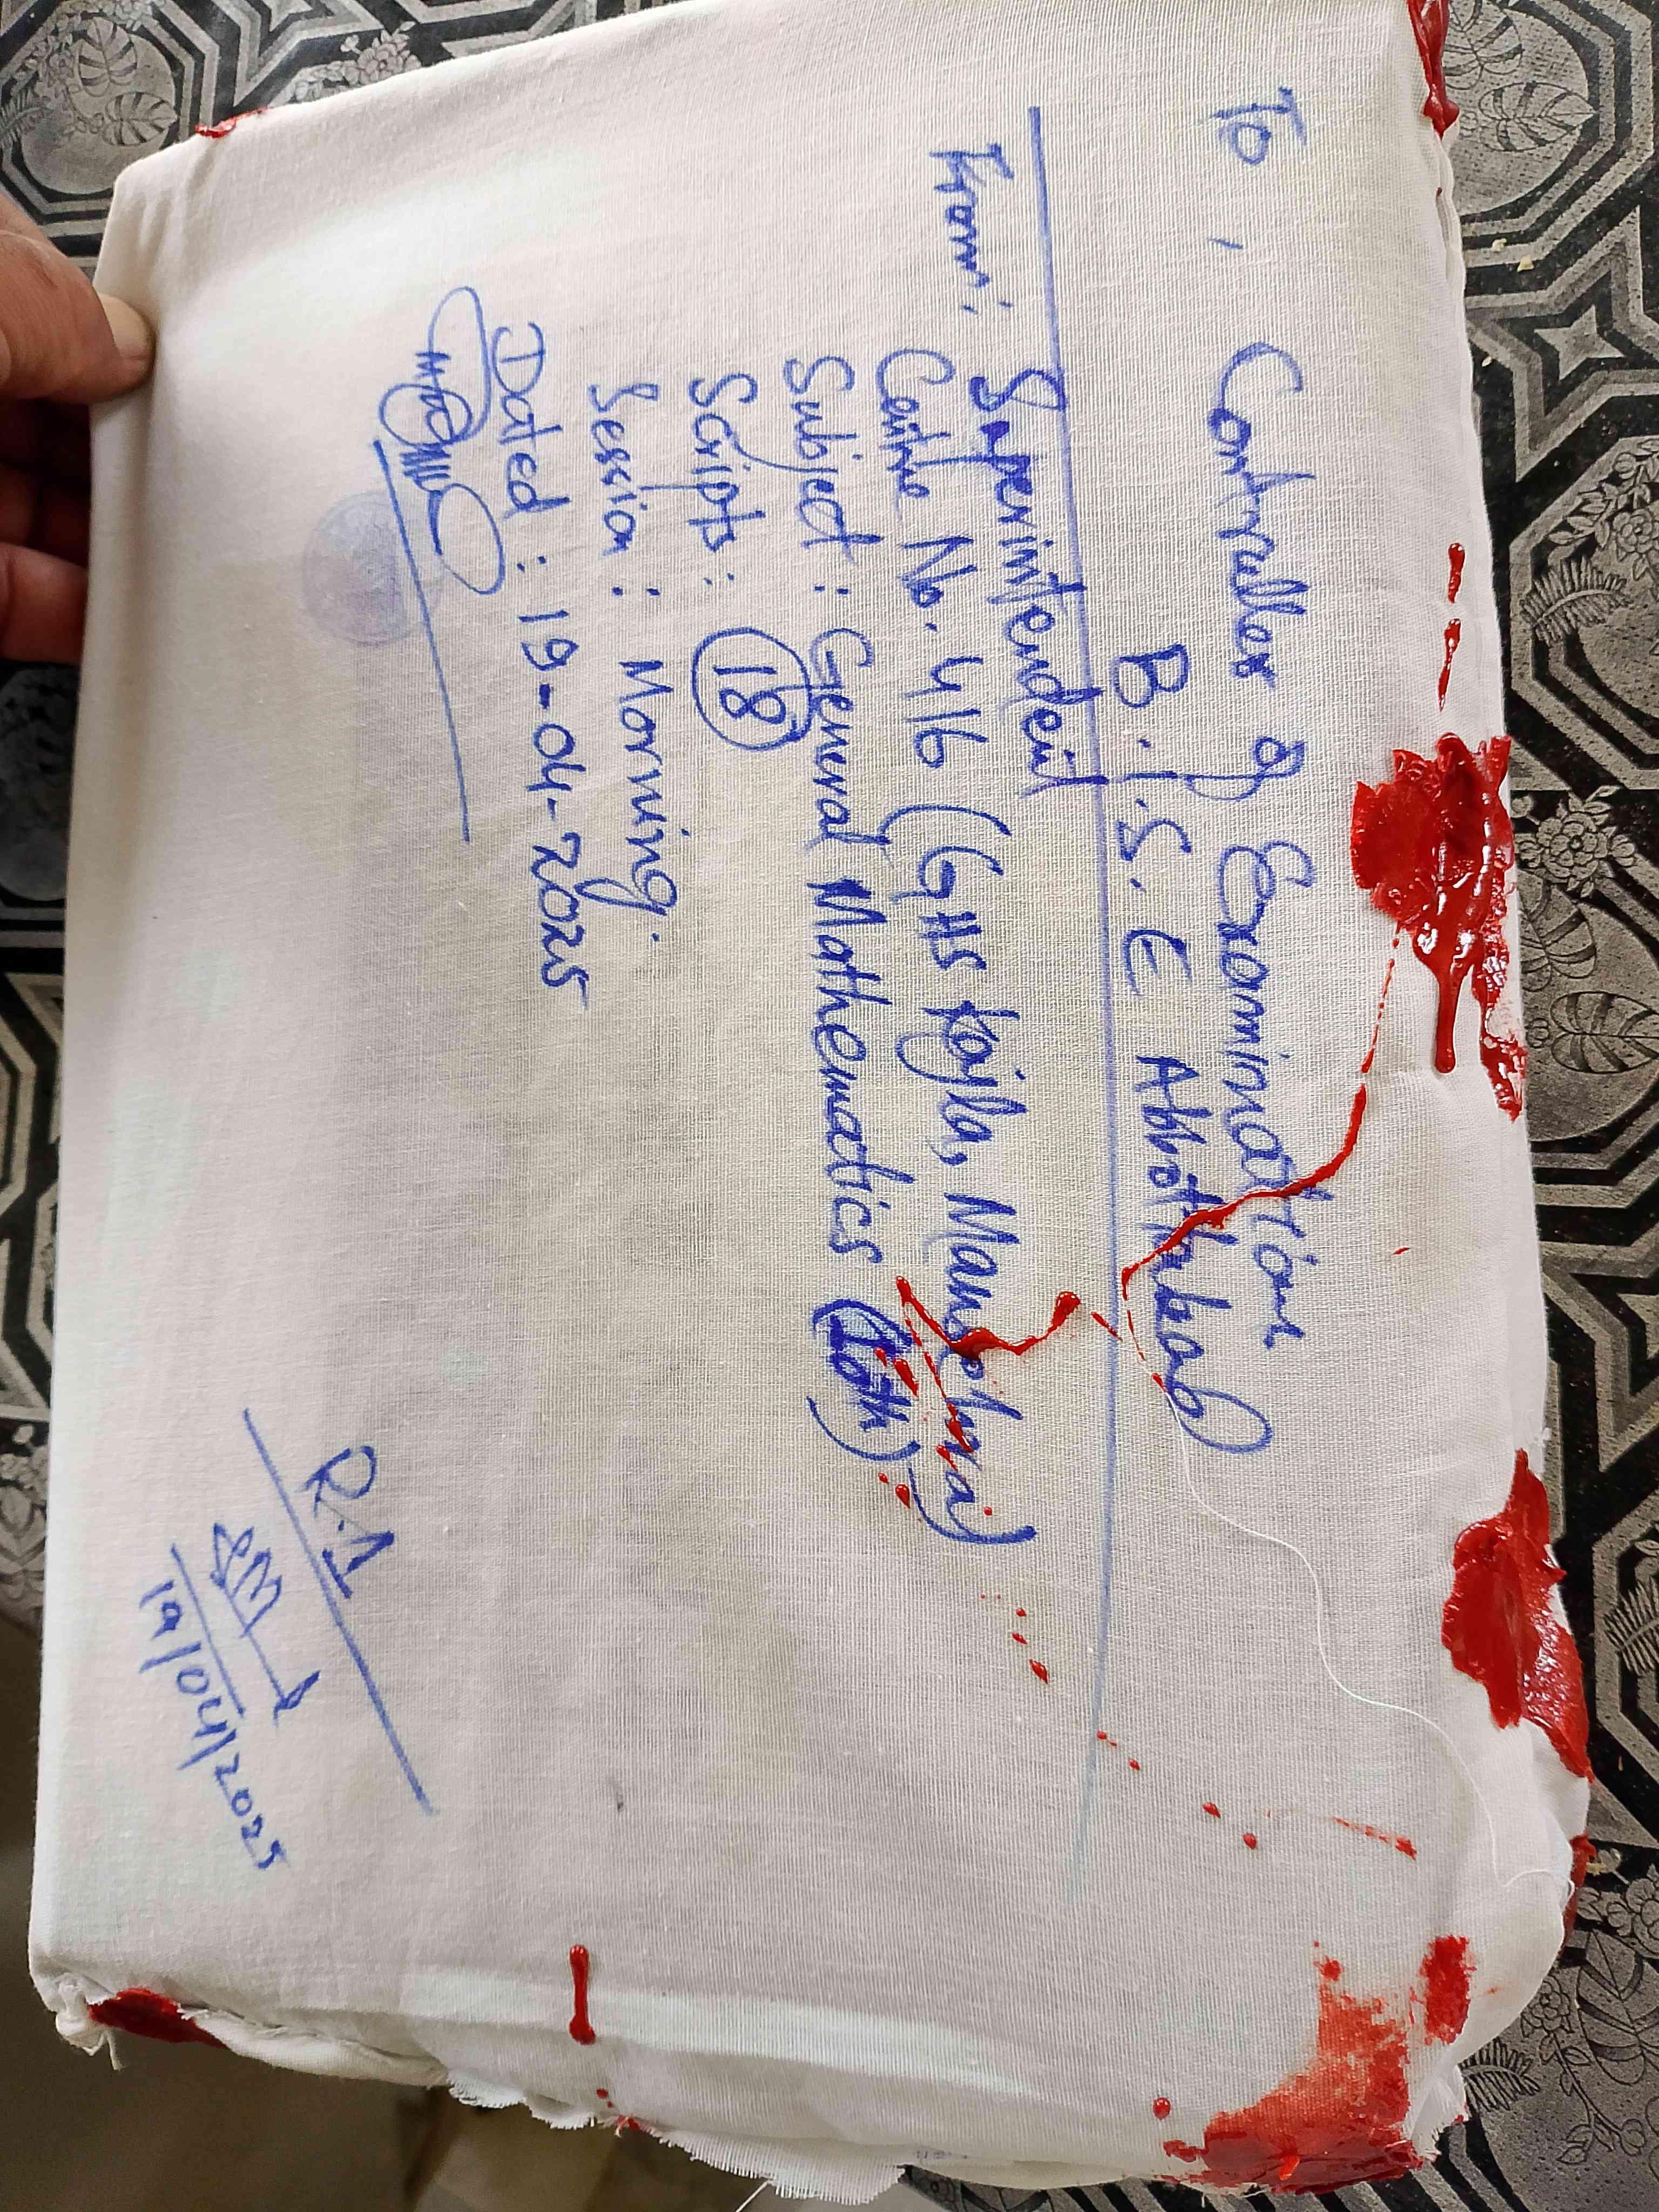 To, Controller of Examination
B.I.S.E Abbottabad
From: Superintendent
Centre No. 416 (GHS Kajla, Mansehra)
Subject: General Mathematics (10th)
Scripts: 18
Session: Morning.
Dated: 19-04-2025
R.I
19/04/2025